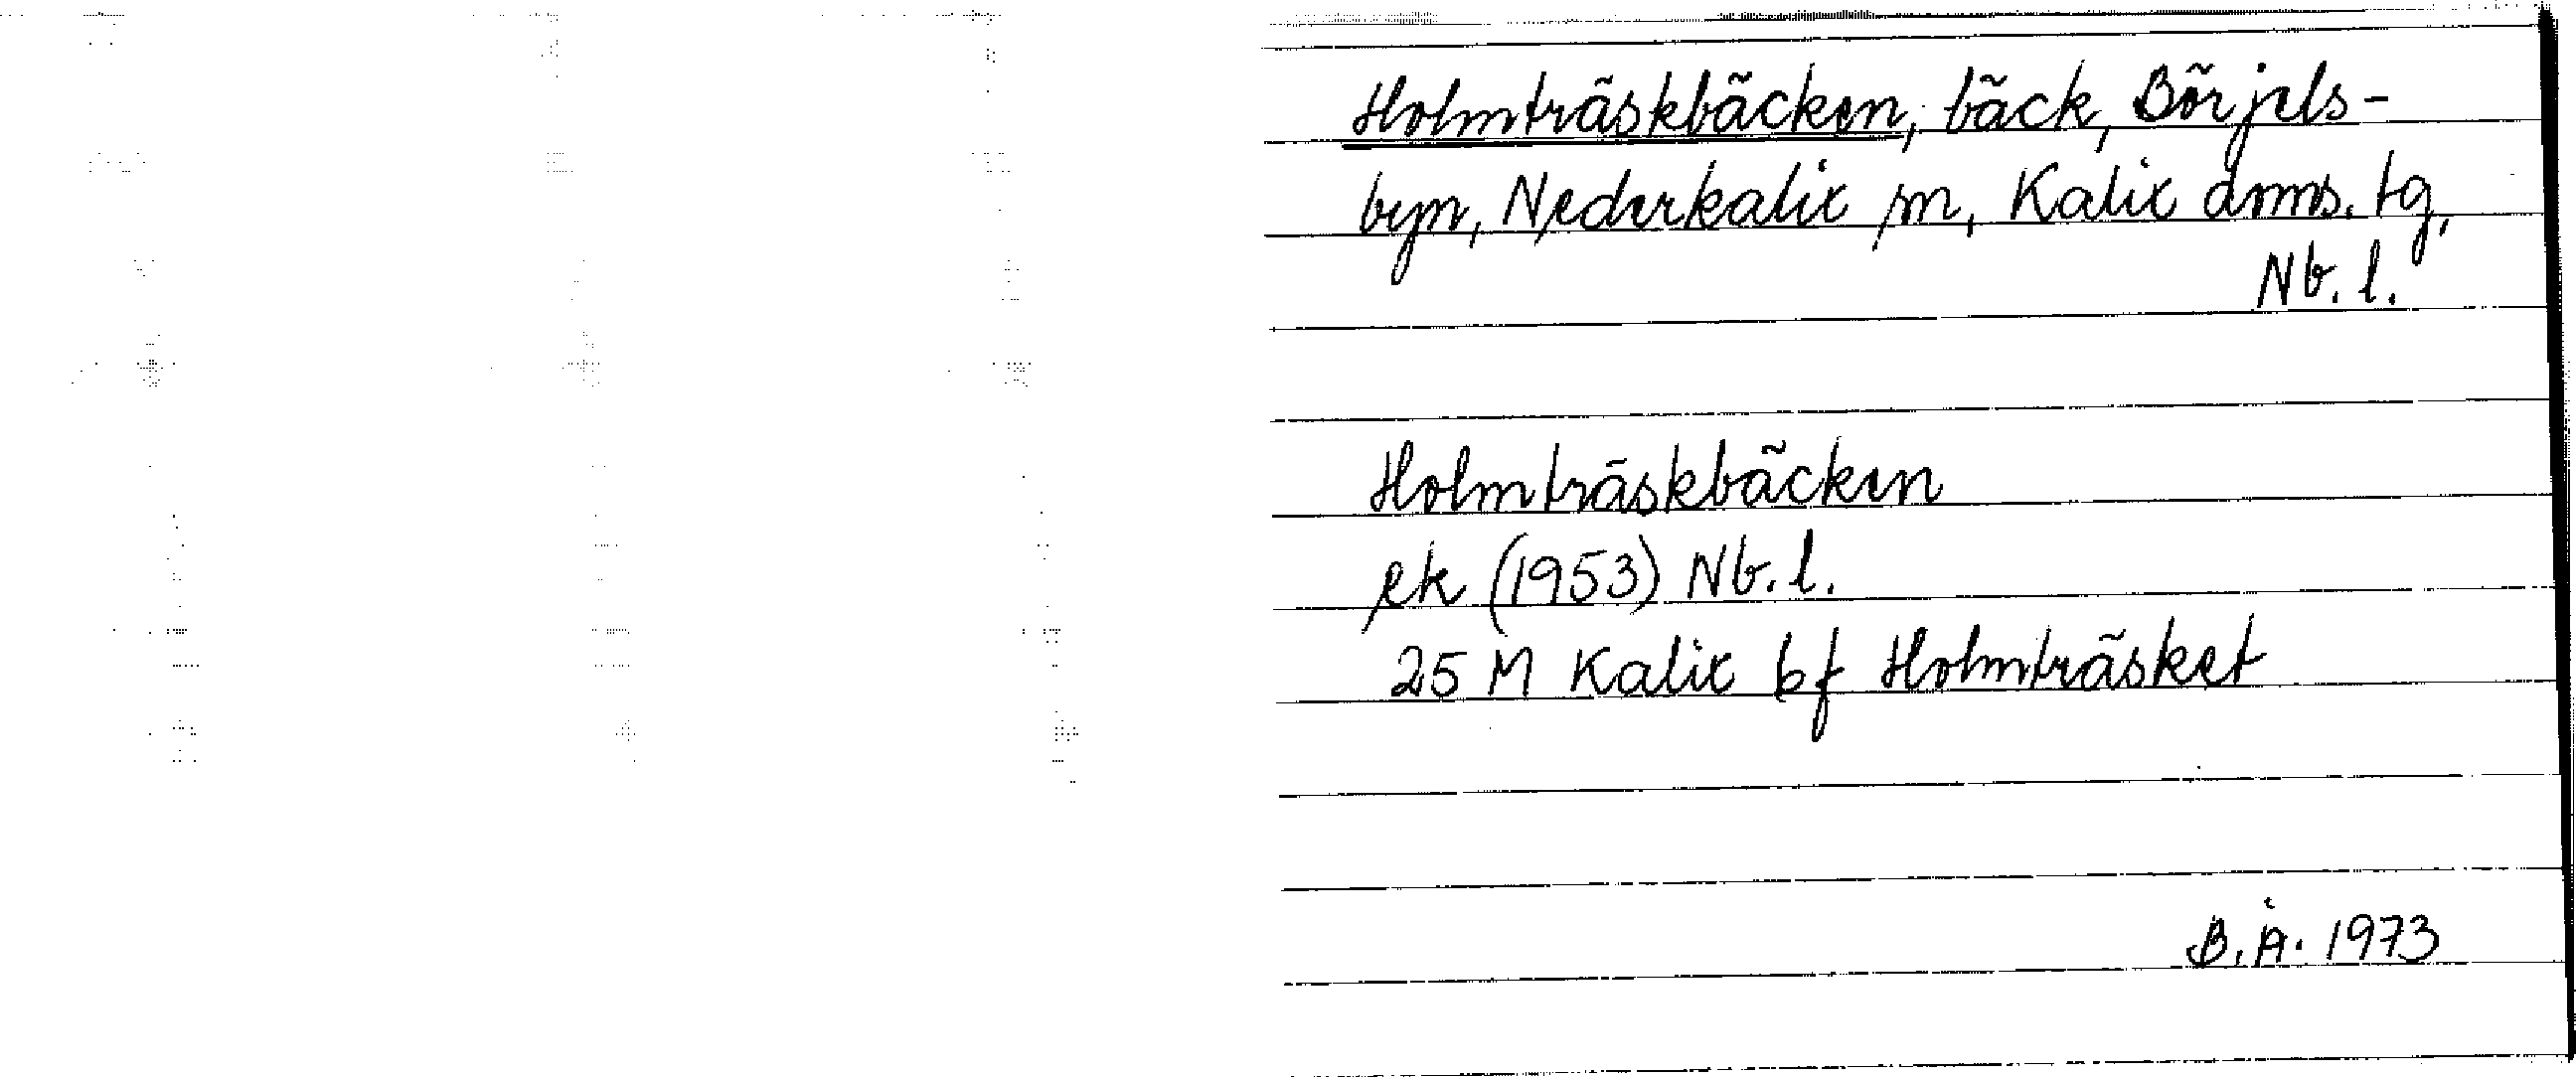 Holmträskbäcken, bäck, Börjels-
byn, Nederkalix sn, Kalix doms. tg,
Nb. l.
Holmträskbäcken
ek (1953) Nb. l.
25 M Kalix bf Holmträsket
B. Å. 1973